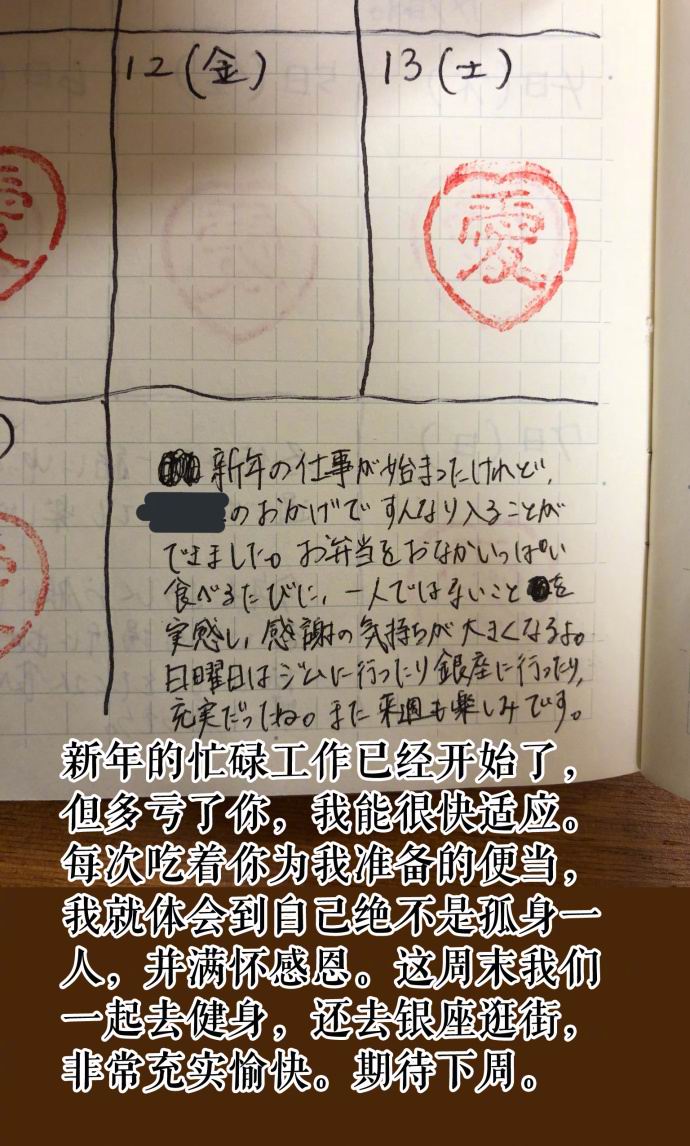 12(金)
13(土)
愛
愛
新年の仕事が始まったけれど、
のおかげですんなり入ることが
できました。お弁当をおなかいっぱい
食べるたびに、一人ではないことを
実感し、感謝の気持ちが大きくなるよ。
日曜日はジムに行ったり銀座に行ったり、
充実だったね。また来週も楽しみです。
新年的忙碌工作已经开始了，
但多亏了你，我能很快适应。
每次吃着你为我准备的便当，
我就体会到自己绝不是孤身一
人，并满怀感恩。这周末我们
一起去健身，还去银座逛街，
非常充实愉快。期待下周。